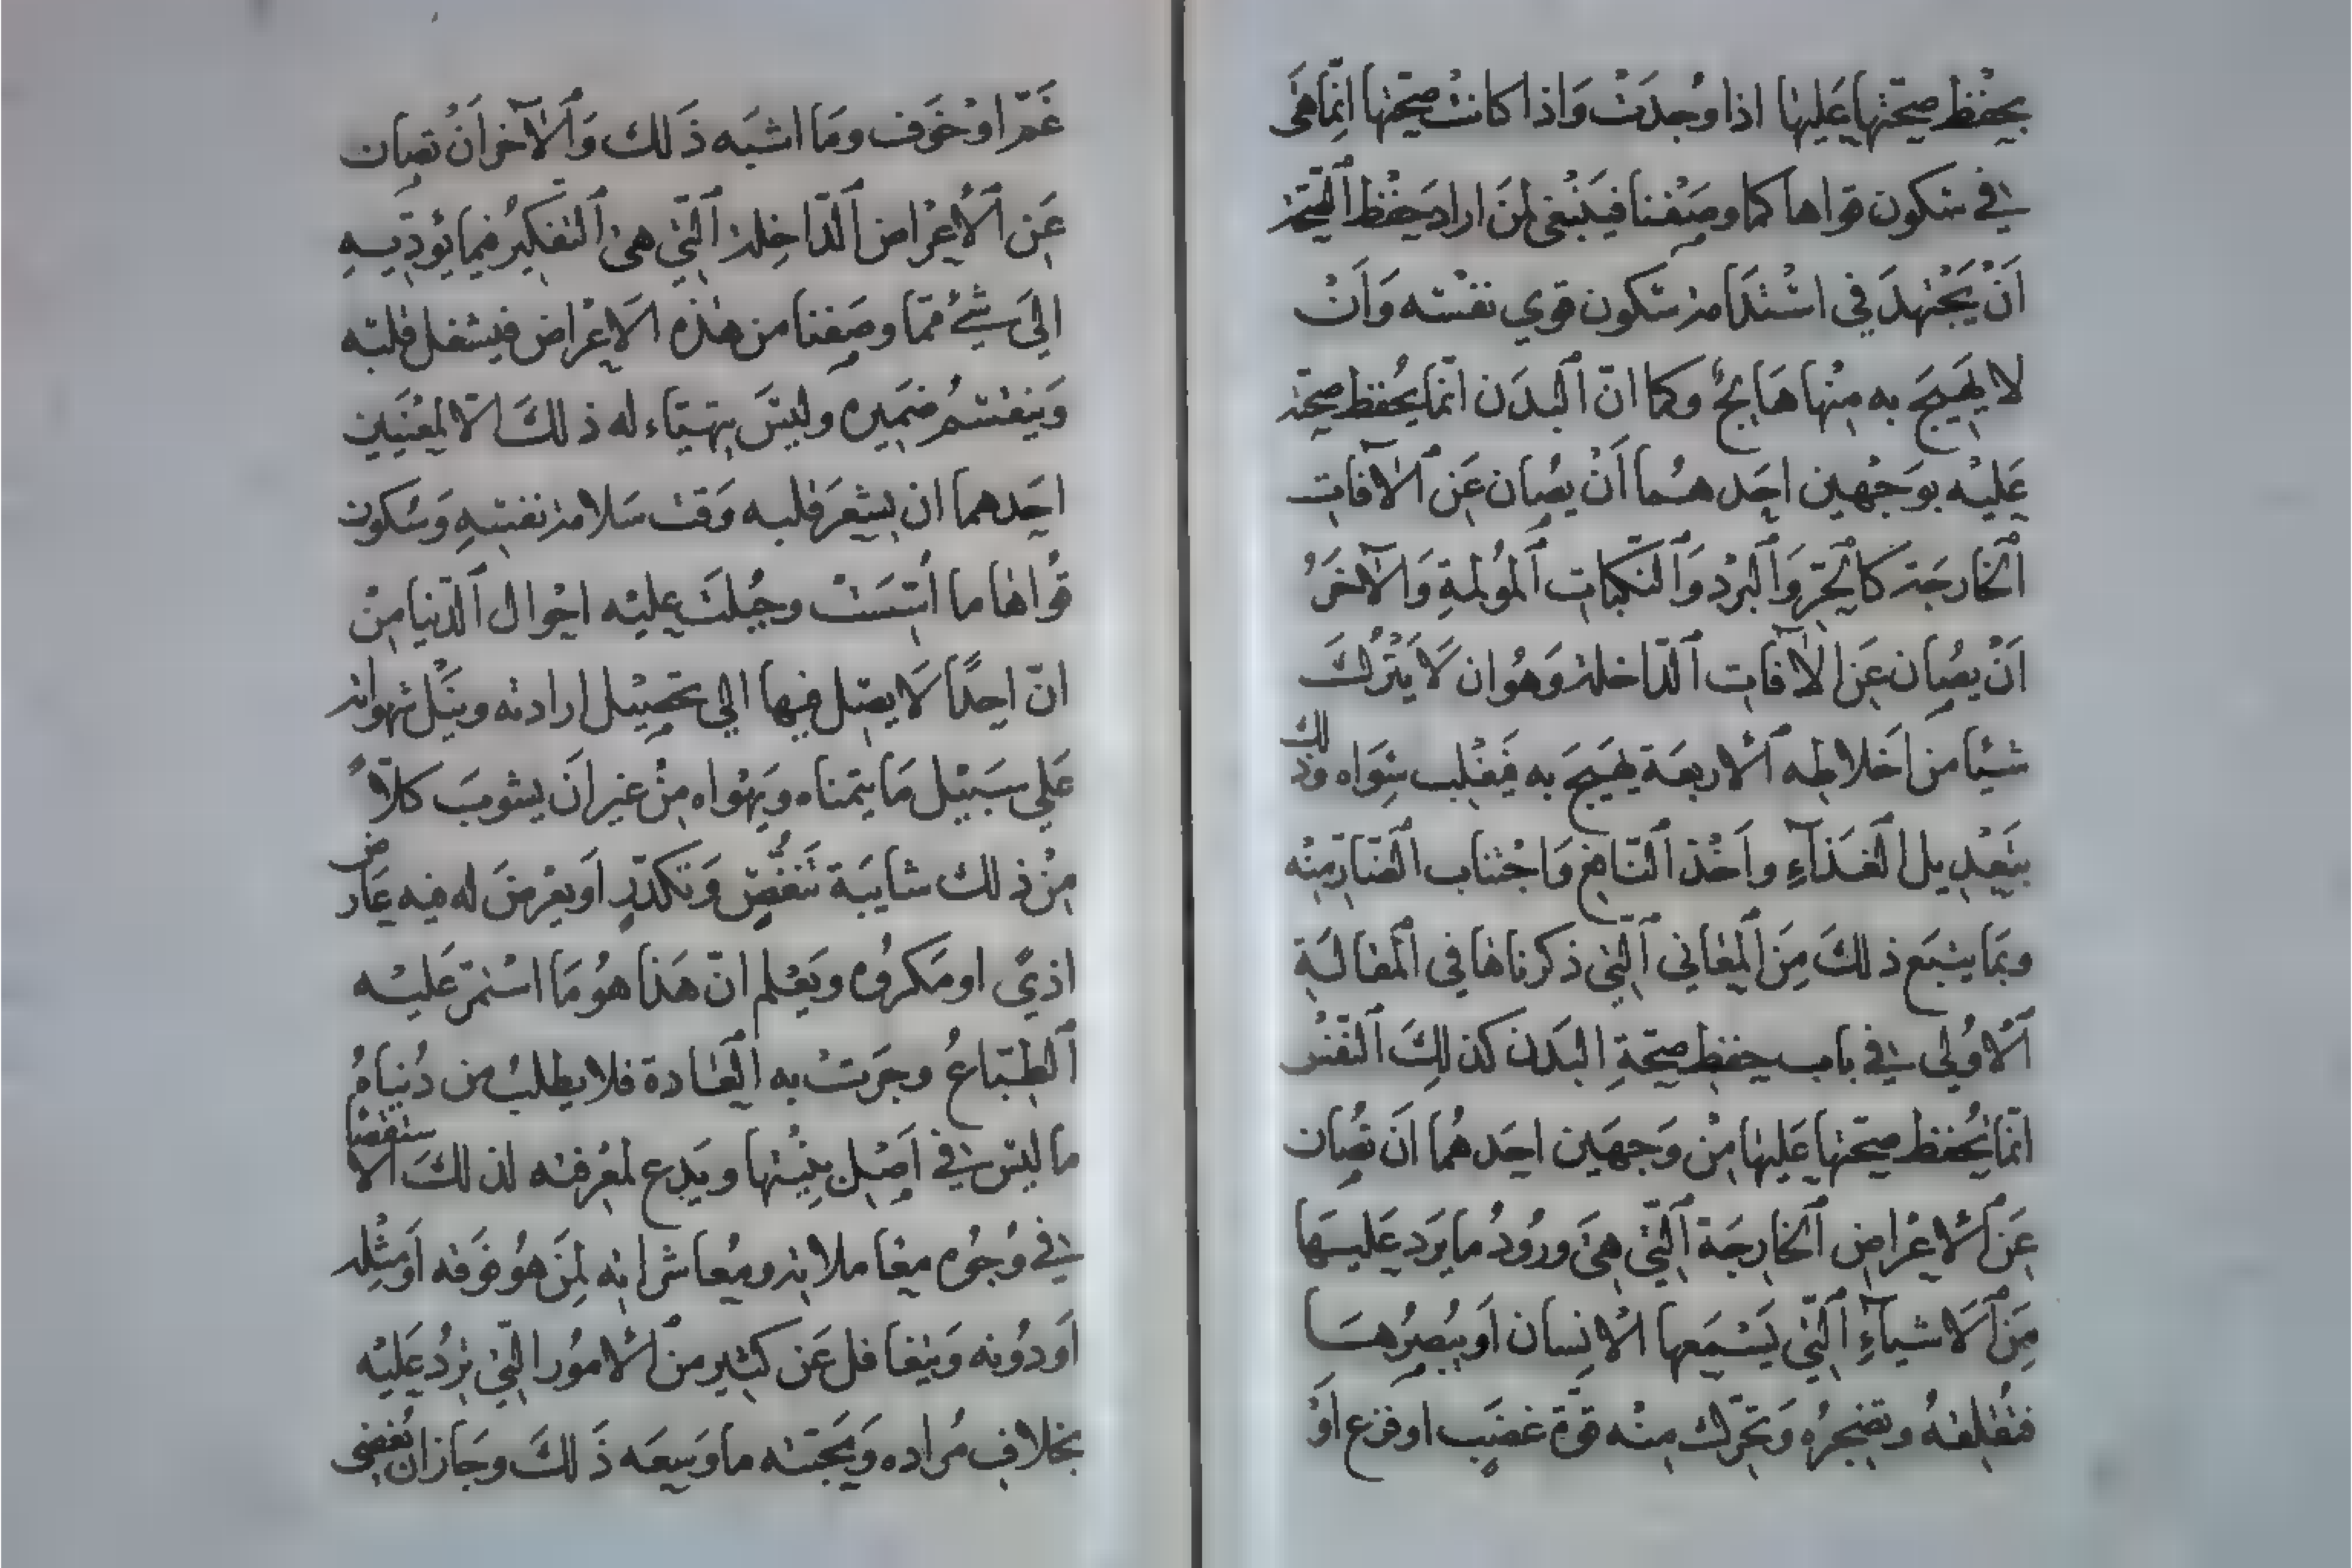 بحفظ صحّتها عليها اذا وُجدَتْ وَاذا كانتْ صحّتها انّما هَي
في سكون قواها كما وصَفْنا فيَنْبغي لمَنْ اراد حِفْظ الصّحّة
اَنْ يَجْتهدَ في اسْتدَامة سكون قوي نفْسه وَاَنْ
لا يَهيجَ به مِنْها هَايجٌ وكما انّ البدَن انّما يُحفظ صحّته
عَليْه بوَجْهين احَدهُما اَنْ يصُان عَن الآفات
الخارجَة كالحَرّ وَالبرْد وَالنّكبات المُولمةِ وَالآخَرُ
اَنْ يصُان عَن الآفات الدّاخلة وَهُوان لَا يَتْرُكَ
شيْا من اَخلاطه الاربعَة يَهيجَ به فيَغْلب سِوَاه وذلك
بتَعْديل الغذَآءِ واَخْذ النّافع وَاجْتناب الضّارّ مِنْه
وبمَا يتبَع ذلكَ مِنَ المعَاني الّتي ذكرناها في المقالةِ
الاُولي في باب حِفظ صحّةِ البَدَن كذلِكَ النّفْسُ
انّما يُحفظ صحّتها عَليها مِنْ وَجهَين احَدهُما اَنْ تصُان
عَن الاعْراض الخارجَة الّتي هيَ ورُودُ ما يَرد عَليهَا
مِنَ الاشيآءِ الّتي يَسْمَعها الاِنسان اَو يبُصِرُها
فتقُلقهُ وتضْجرُه وَتحَرّك مِنْه قوّة غضَب او فزع اَوْ
غَمّ اوْ خَوف ومَا اشبَه ذَلك وَالآخرُ اَنْ تصان
عَن الاَعْراض الدّاخِلة الّتي هيَ التفكيرُ فيما يُودّيهِ
اليَ شيْ ممّا وصَفنا من هٰذه الاعْراض فيشغل قلبَه
وَينقسْمُ ضَميره وليْسَ يتهيّاء له ذلكَ الا لمعْنَيين
احَدهما ان يشعرَ قلبه وَقت سَلامة نفسهِ وَسُكون
قُواها ما اُسّسَتْ وجُبلتَ عليْه احْوال الدّنيا مِنْ
انّ احدًا لَا يصل فيها الي تحَصيْل ارادته وينَيْل شهواته
عَلي سَبيْل مَا يتمناه ويَهْواه مِنْ غير اَن يشوبَ كلّاً
مِنْ ذلك شايبَة تَنَغّصٍ وَتكدّرٍ اَو يعْرضَ له فيه عَارض
اذيً او مَكروُه ويَعْلم انّ هَذا هوُ مَا اسْتمَرّ عَليْه
الطّبَاعُ وجَرَتْ به العَادة فلا يطلبُ من دُنياهُ
ما ليْس في اَصْل بنِيْتها ويَدع لمعْرفته لذلكَ الاستقصا
في وُجُوه معَاملاته ومُعاشراته لمَنْ هوُ فوَقه اَو مثِله
اَو دُونه وَيتغافل عَن كثير من الاموُر الّتي ترِدُ عَليْه
بخلاف مُراده وَيَجتنه ما وسِعَه ذَلكَ وجَاز ان يُغضي